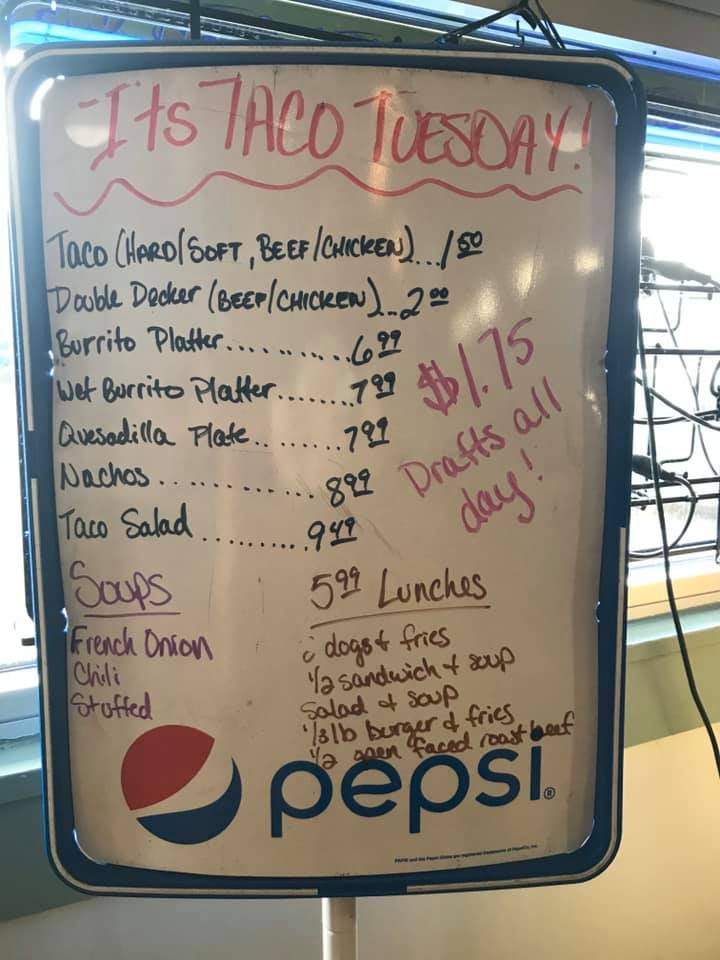 Its TACO TUESDAY!
Taco (HARD/SOFT, BEEF/CHICKEN)...1 50
Double Decker (BEEF/CHICKEN)...2 00
Burrito Platter............6 99
Wet Burrito Platter.......7 99
Quesadilla Plate.........7 99
Nachos..............8 99
Taco Salad..........9 49
$1.75
Drafts all
day!
Soups
French Onion
Chili
Stuffed
5 99 Lunches
dogs & fries
1/2 sandwich & soup
Salad & soup
1/3 lb burger & fries
1/2 open faced roast beef
pepsi®